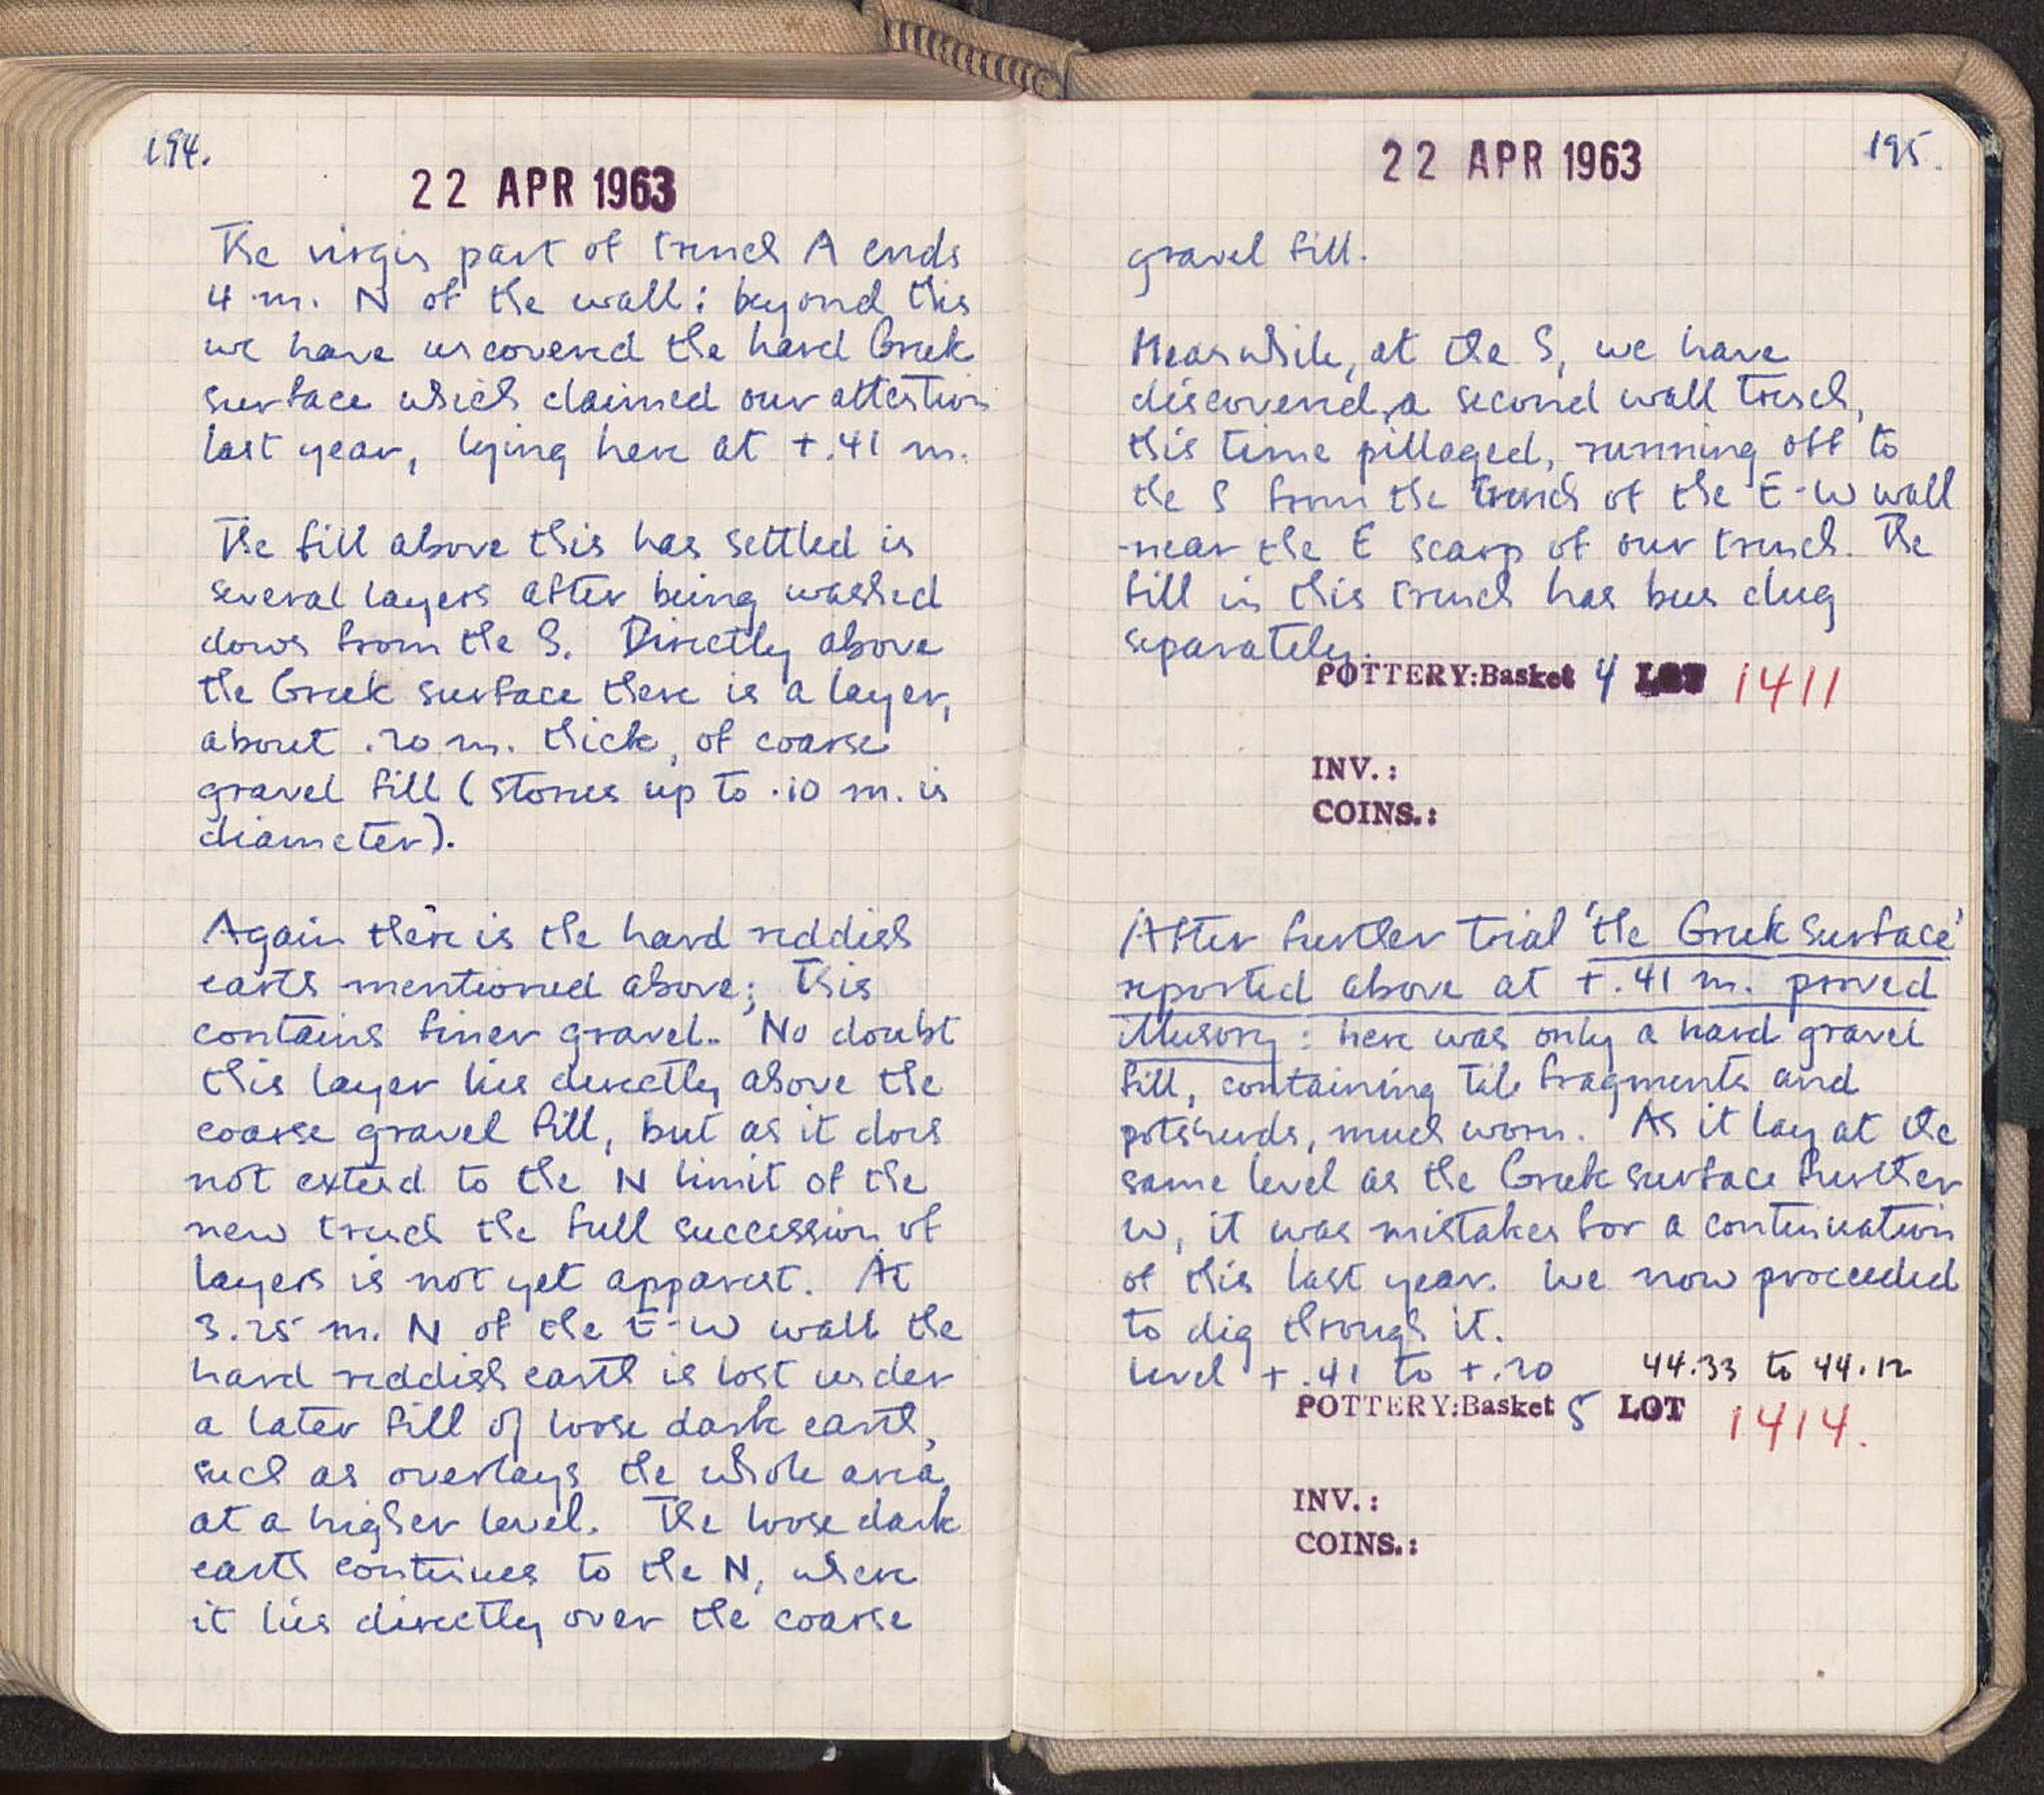 194.
22 APR 1963
The virgin part of trench A ends
4 m. N of the wall: beyond this
we have uncovered the hard Greek
surface which claimed our attention
last year, lying here at +.41 m.
The fill above this has settled in
several layers after being washed
down from the S. Directly above
the Greek surface there is a layer,
about .20 m. thick, of coarse
gravel fill (stones up to .10 m. in
diameter).
Again there is the hard reddish
earth mentioned above; this
contains finer gravel. No doubt
this layer lies directly above the
coarse gravel fill, but as it does
not extend to the N limit of the
new trench the full succession of
layers is not yet apparent. At
3.25 m. N of the E-W wall the
hard reddish earth is lost under
a later fill of loose dark earth,
such as overlays the whole area
at a higher level. The loose dark
earth continues to the N, where
it lies directly over the coarse
22 APR 1963
195.
gravel fill.
Meanwhile, at the S, we have
discovered a second wall trench,
this time pillaged, running off to
the S from the trench of the E-W wall
near the E scarp of our trench. The
fill in this trench has been dug
separately.
POTTERY:Basket 4 LOT 1411
INV.:
COINS.:
After further trial 'the Greek surface'
reported above at +.41 m. proved
illusory: here was only a hard gravel
fill, containing tile fragments and
potsherds, much worn. As it lay at the
same level as the Greek surface further
W, it was mistaken for a continuation
of this last year. We now proceeded
to dig through it.
Level +.41 to +.20 44.33 to 44.12
POTTERY:Basket 5 LOT 1414.
INV.:
COINS.: